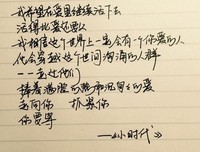 我希望在爱里继续活下去
活得比原来还要
我相信这个世界上一定会有一个你爱的人
他会穿越这个世间汹涌的人群
一一走过他们
捧着满腔的热和沉甸甸的爱
走向你 抓紧你
你要等
——《小时代》